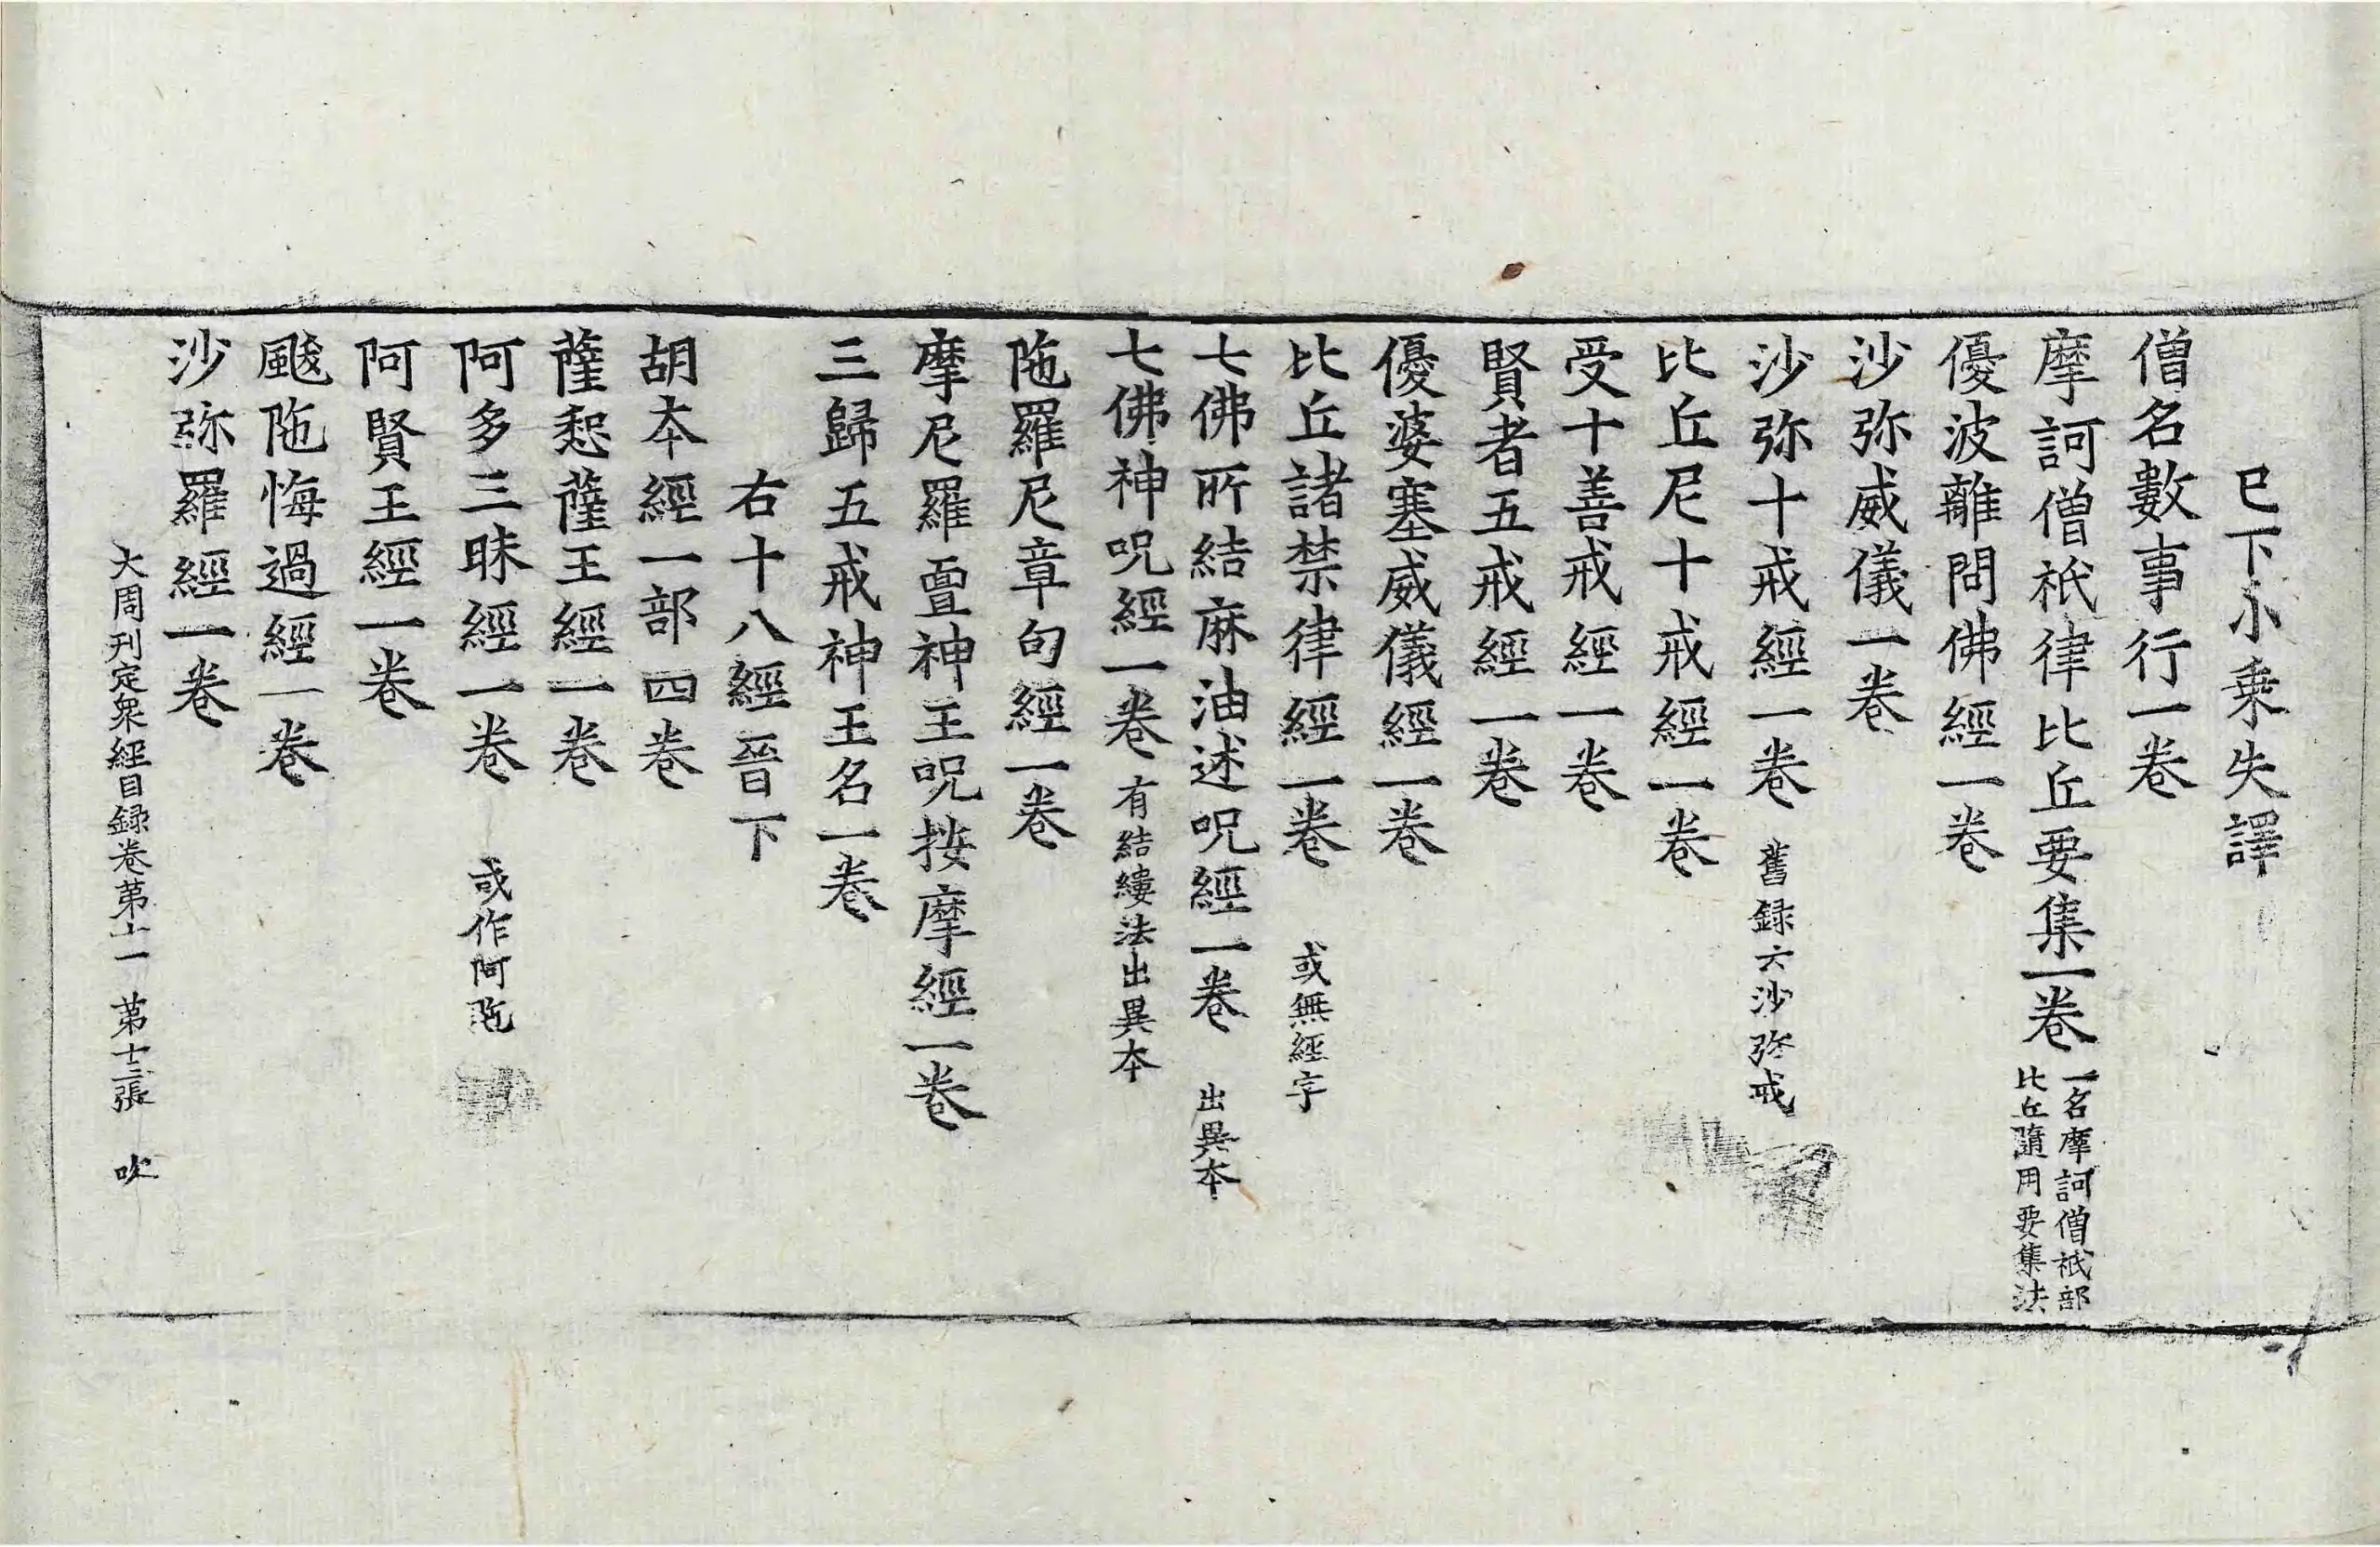 已下小乗失譯
僧名數事行一卷
摩訶僧祇律比丘要集一卷 一名摩訶僧祇部比丘隨用要集法
優波離問佛經一卷
沙弥威儀一卷
沙弥十戒經一卷 舊録云沙弥戒
比丘尼十戒經一卷
受十善戒經一卷
賢者五戒經一卷
優婆塞威儀經一卷
比丘諸禁律經一卷 或無經字
七佛所結麻油述呪經一卷 出異本
七佛神呪經一卷 有結縷法出異本
陁羅尼章句經一卷
摩尼羅亶神王呪按摩經一卷
三歸五戒神王名一卷
右十八經晉下
胡本經一部四卷
薩惒薩王經一卷
阿多三昧經一卷 或作阿陁
阿賢王經一卷
颰陁悔過經一卷
沙弥羅經一卷
大周刊定衆經目録卷第十一 第十三張 吹